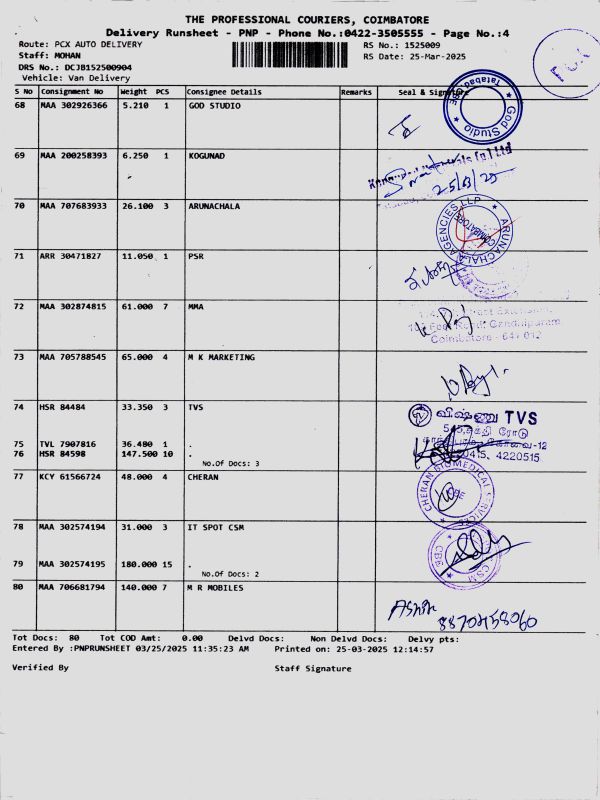 THE PROFESSIONAL COURIERS, COIMBATORE
Delivery Runsheet - PNP - Phone No.:0422-3505555 - Page No.:4
Route: PCX AUTO DELIVERY RS No.: 1525009
Staff: MOHAN RS Date: 25-Mar-2025
DRS No.: DCJB152500904
Vehicle: Van Delivery
S No Consignment No Weight PCS Consignee Details Remarks Seal & Signature
68 MAA 302926366 5.210 1 GOD STUDIO
God Studio
Tatabad CBE
69 MAA 200258393 6.250 1 KOGUNAD
[p] Ltd
25/03/25
70 MAA 707683933 26.100 3 ARUNACHALA
ARUNACHALA AGENCIES LLP
COIMBATORE
71 ARR 30471827 11.050 1 PSR
72 MAA 302874815 61.000 7 MMA
Feet Road, Gandhipuram,
Coimbatore - 641 012
73 MAA 705788545 65.000 4 M K MARKETING
74 HSR 84484 33.350 3 TVS
விஷ்ணு TVS
சத்தி ரோடு
கோவை-12
4220515
75 TVL 7907816 36.480 1 .
76 HSR 84598 147.500 10 .
No.Of Docs: 3
77 KCY 61566724 48.000 4 CHERAN
CHERAN BIOMEDICAL SERVICES
CBE
78 MAA 302574194 31.000 3 IT SPOT CSM
CSM
CBE
79 MAA 302574195 180.000 15 .
No.Of Docs: 2
80 MAA 706681794 140.000 7 M R MOBILES
Tot Docs: 80 Tot COD Amt: 0.00 Delvd Docs: Non Delvd Docs: Delvy pts:
Entered By :PNPRUNSHEET 03/25/2025 11:35:23 AM Printed on: 25-03-2025 12:14:57
Verified By Staff Signature